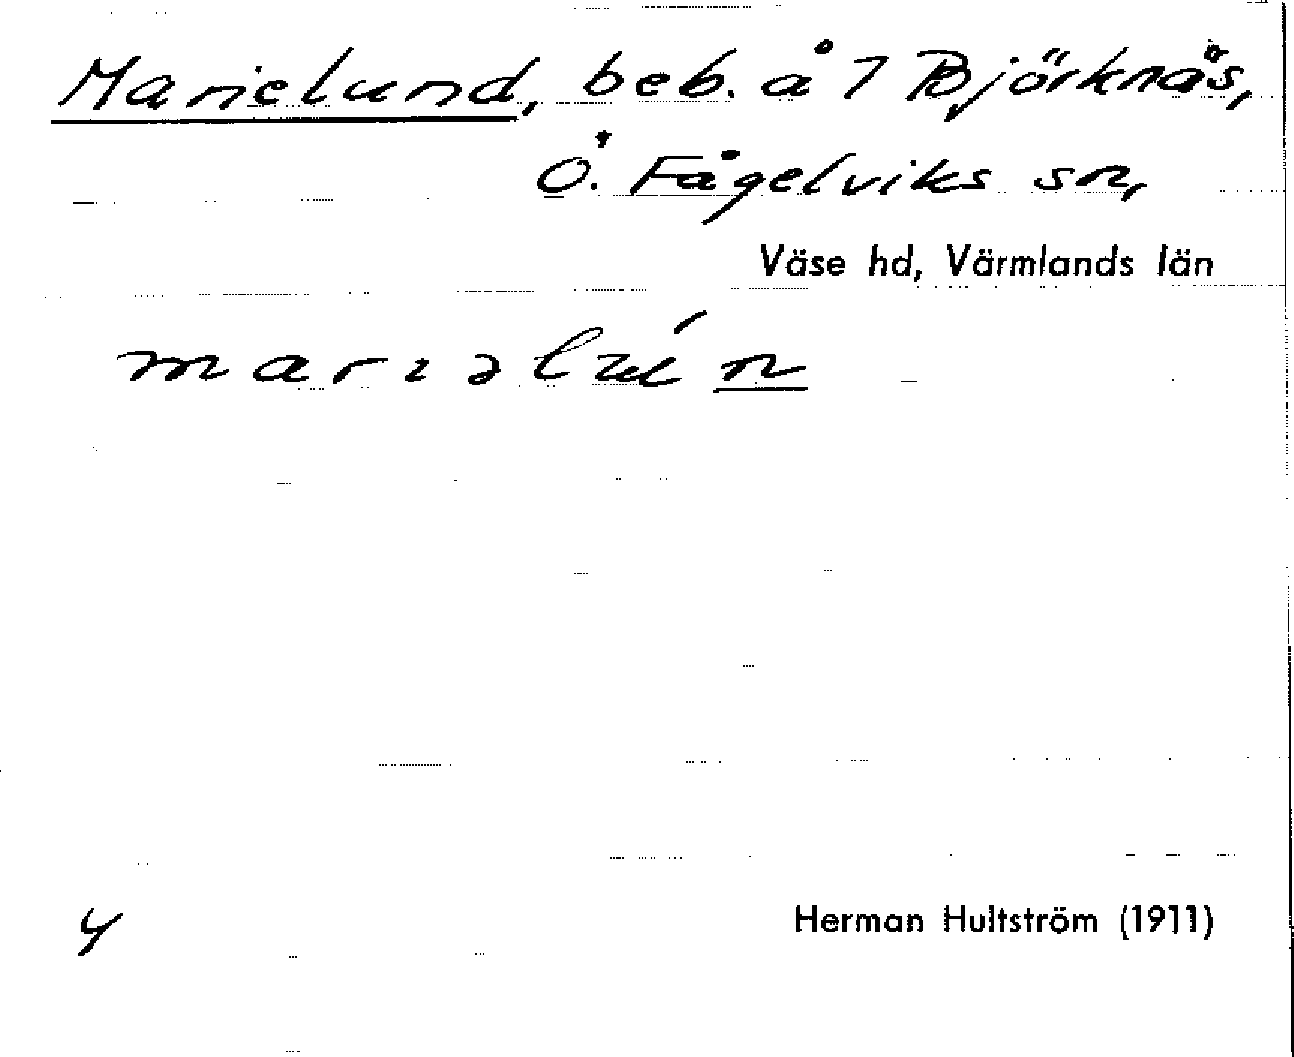 Marielund, beb. å 7 Björknäs,
Ö. Fågelviks sn,
Väse hd, Värmlands län
4
Herman Hultström (1911)